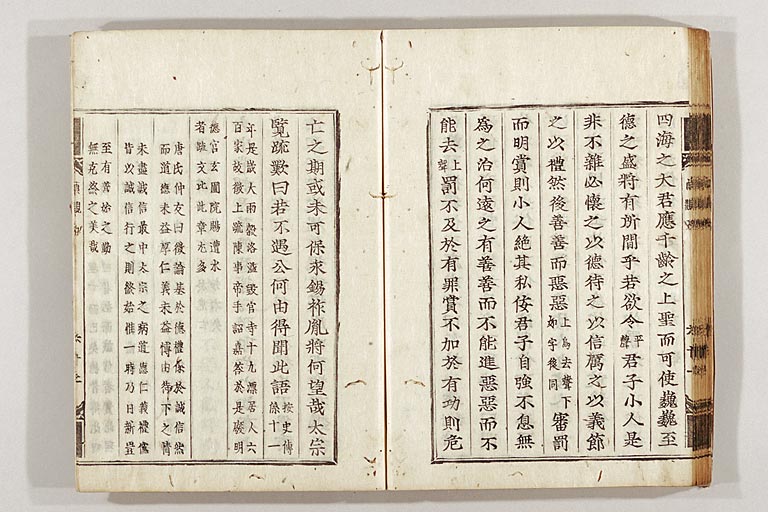 四海之大君應千齡之上聖而可使巍巍至
德之盛將有所間乎若欲令平聲君子小人是
非不雜必懷之以德待之以信厲之以義節
之以禮然後善善而惡惡上烏去聲下如字後同審罰
而明賞則小人絶其私佞君子自強不息無
爲之治何遠之有善善而不能進惡惡而不
能去上聲罰不及於有罪賞不加於有功則危
亡之期或未可保永錫祚胤將何望哉太宗
覽疏歎曰若不遇公何由得聞此語按史傳係十一
年是歲大雨穀洛溢毀宮寺十九漂居人六
百家故徵上疏陳事帝手詔嘉答於是廢明
德宮玄圃院賜遭水
者雖文比此章尤多
唐氏仲友曰徵論基於德禮保於誠信然
而道德未益厚仁義未益博由待下之情
未盡誠信最中太宗之病道德仁義禮樂
皆以誠信行之則終始惟一時乃日新豈
至有善始之勤
無克終之美哉